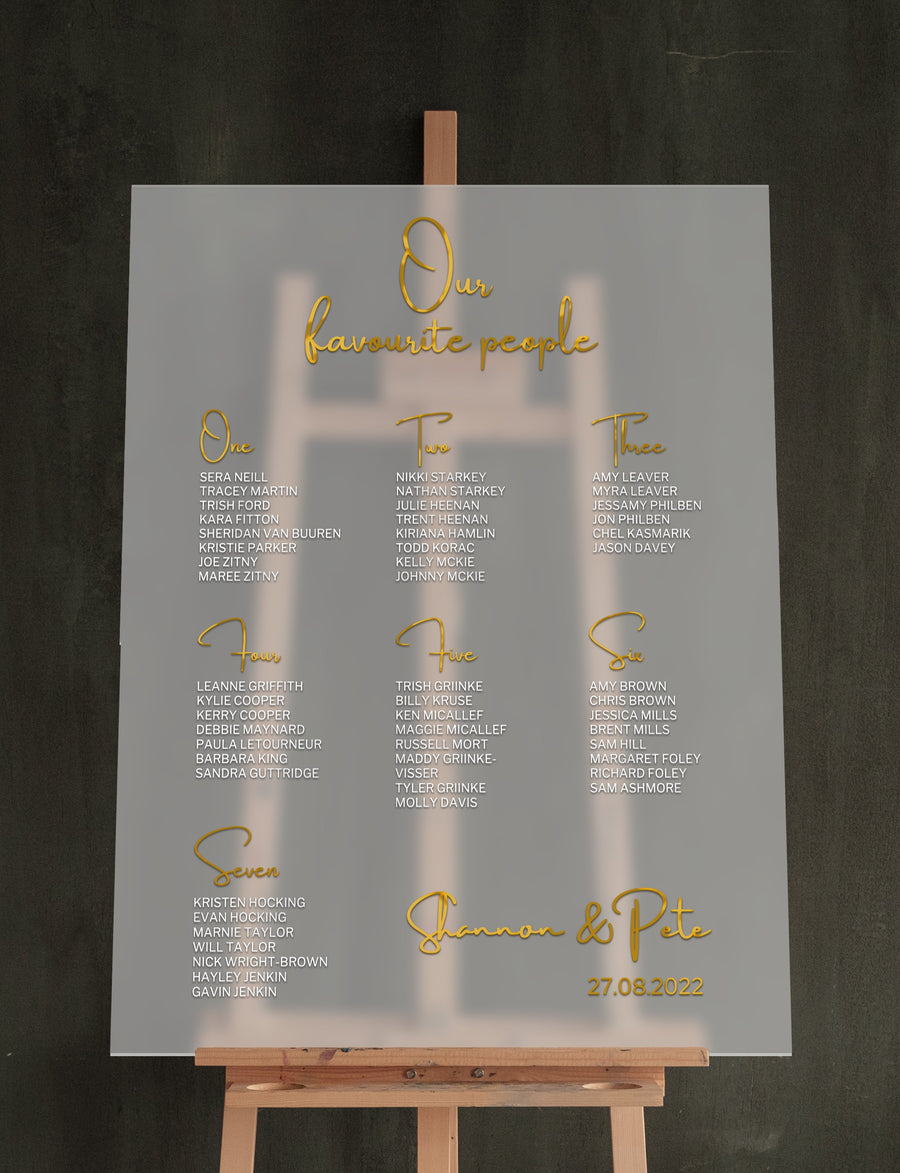 Our
favourite people
One
SERA NEILL
TRACEY MARTIN
TRISH FORD
KARA FITTON
SHERIDAN VAN BUUREN
KRISTIE PARKER
JOE ZITNY
MAREE ZITNY
Two
NIKKI STARKEY
NATHAN STARKEY
JULIE HEENAN
TRENT HEENAN
KIRIANA HAMLIN
TODD KORAC
KELLY MCKIE
JOHNNY MCKIE
Three
AMY LEAVER
MYRA LEAVER
JESSAMY PHILBEN
JON PHILBEN
CHEL KASMARIK
JASON DAVEY
Four
LEANNE GRIFFITH
KYLIE COOPER
KERRY COOPER
DEBBIE MAYNARD
PAULA LETOURNEUR
BARBARA KING
SANDRA GUTTRIDGE
Five
TRISH GRIINKE
BILLY KRUSE
KEN MICALLEF
MAGGIE MICALLEF
RUSSELL MORT
MADDY GRIINKE-
VISSER
TYLER GRIINKE
MOLLY DAVIS
Six
AMY BROWN
CHRIS BROWN
JESSICA MILLS
BRENT MILLS
SAM HILL
MARGARET FOLEY
RICHARD FOLEY
SAM ASHMORE
Seven
KRISTEN HOCKING
EVAN HOCKING
MARNIE TAYLOR
WILL TAYLOR
NICK WRIGHT-BROWN
HAYLEY JENKIN
GAVIN JENKIN
Shannon & Pete
27.08.2022